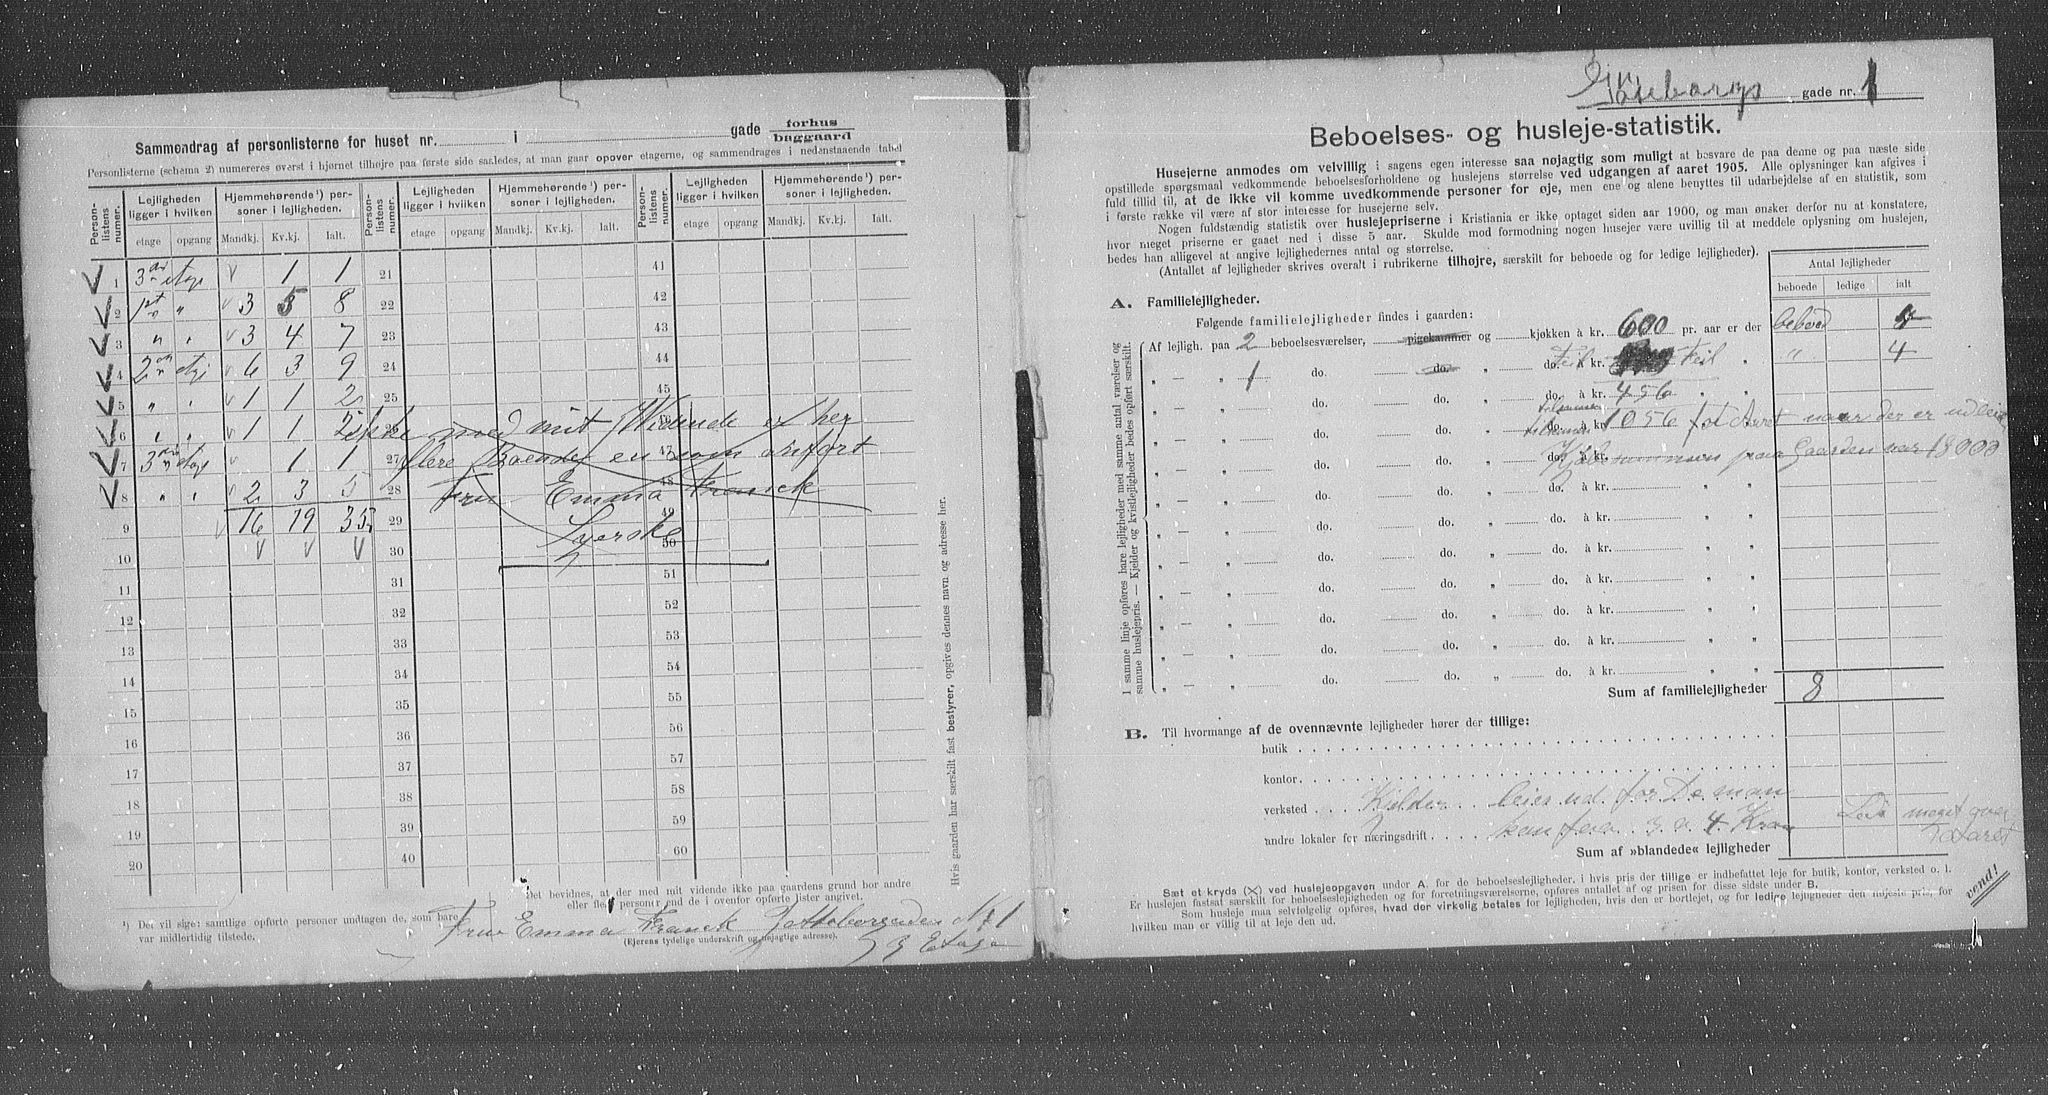 Sammendrag af personlisterne for huset nr. i gade forhus
baggaard
Personlisterne (schema 2) numereres øverst i hjørnet tilhøjre paa første side saaledes, at man gaar opover etagerne, og sammendrages i nedenstaaende tabel
Person-listens numer. Lejligheden ligger i hvilken Hjemmehørende¹) personer i lejligheden. Person-listens numer. Lejligheden ligger i hvilken Hjemmehørende¹) personer i lejligheden. Person-listens numer. Lejligheden ligger i hvilken Hjemmehørende¹) personer i lejligheden.
etage opgang Mandkj. Kv.kj. Ialt. etage opgang Mandkj. Kv.kj. Ialt. etage opgang Mandkj. Kv.kj. Ialt.
1 3 etage 1 1 21 41
2 1st " 3 5 8 22 42
3 " " 3 4 7 23 43
4 2 etage 6 3 9 24 44
5 " " 1 1 2 25 45
6 " " 1 1 2 26 46
7 3 etage 1 1 27 47
8 " " 2 3 5 28 48
9 16 19 35 29 49
10 30 50
11 31 51
12 32 52
13 33 53
14 34 54
15 35 55
16 36 56
17 37 57
18 38 58
19 39 59
20 40 60
ikke med mit Vidende er her
flere Boende en som anført
Fru Emma Franck
Syerske
Hvis gaarden har særskilt fast bestyrer, opgives dennes navn og adresse her.
Det bevidnes, at der med mit vidende ikke paa gaardens grund bor andre
eller flere personer end de i ovenfor opførte lister angivet.
¹) Det vil sige: samtlige opførte personer undtagen de, som bare
var midlertidig tilstede.
Frue Emma Franck Gøtteborggaden No 1
(Ejerens tydelige underskrift og nøjagtige adresse).
3 Etage
Gøteborgs gade nr. 1
Beboelses- og husleje-statistik.
Husejerne anmodes om velvillig i sagens egen interesse saa nøjagtig som muligt at besvare de paa denne og paa næste side
opstillede spørgsmaal vedkommende beboelsesforholdene og huslejens størrelse ved udgangen af aaret 1905. Alle oplysninger kan afgives i
fuld tillid til, at de ikke vil komme uvedkommende personer for øje, men ene og alene benyttes til udarbejdelse af en statistik, som
i første række vil være af stor interesse for husejerne selv.
Nogen fuldstændig statistik over huslejepriserne i Kristiania er ikke optaget siden aar 1900, og man ønsker derfor nu at konstatere,
hvor meget priserne er gaaet ned i disse 5 aar. Skulde mod formodning nogen husejer være uvillig til at meddele oplysning om huslejen,
bedes han alligevel at angive lejlighedernes antal og størrelse.
(Antallet af lejligheder skrives overalt i rubrikerne tilhøjre, særskilt for beboede og for ledige lejligheder).
Antal lejligheder
beboede ledige ialt
A. Familielejligheder.
Følgende familielejligheder findes i gaarden:
I samme linje opføres bare lejligheder med samme antal værelser og
samme huslejepris. — Kjelder og kvistlejligheder bedes opført særskilt.
Af lejligh. paa 2 beboelsesværelser, pigekammer og kjøkken à kr. 600 pr. aar er der beboed
" — " 1 do. do. " do. à kr. Feil Feil " " 4
" — " do. " do. à kr. 456 "
" — " do. " do. à kr. tilsammen 1056 for Aaret naar der er udleiet
" — " do. " do. à kr. Kjøbesummen paa Gaarden var 18000
" — " do. " do. à kr. " "
" — " do. " do. à kr. " "
" — " do. " do. à kr. " "
" — " do. " do. à kr. " "
" — " do. " do. à kr. " "
" — " do. " do. à kr. " "
" — " do. " do. à kr. " "
Sum af familielejligheder 8
B. Til hvormange af de ovennævnte lejligheder hører der tillige:
butik
kontor
verksted Kjelder leier ud for De man
andre lokaler for næringsdrift kan faa 3 a 4 Kron
meget over
Aaret
Sum af »blandede« lejligheder
Sæt et kryds (X) ved huslejeopgaven under A. for de beboelseslejligheder, i hvis pris der tillige er indbefattet leje for butik, kontor, verksted o. l.
Er huslejen fastsat særskilt for beboelseslejligheden og for forretningsværelserne, opføres antallet af og prisen for disse sidste under B.
Som husleje maa selvfølgelig opføres, hvad der virkelig betales for lejligheden, hvis den er bortlejet, og for ledige lejligheder den højeste pris, for
hvilken man er villig til at leje den ud.
vend!